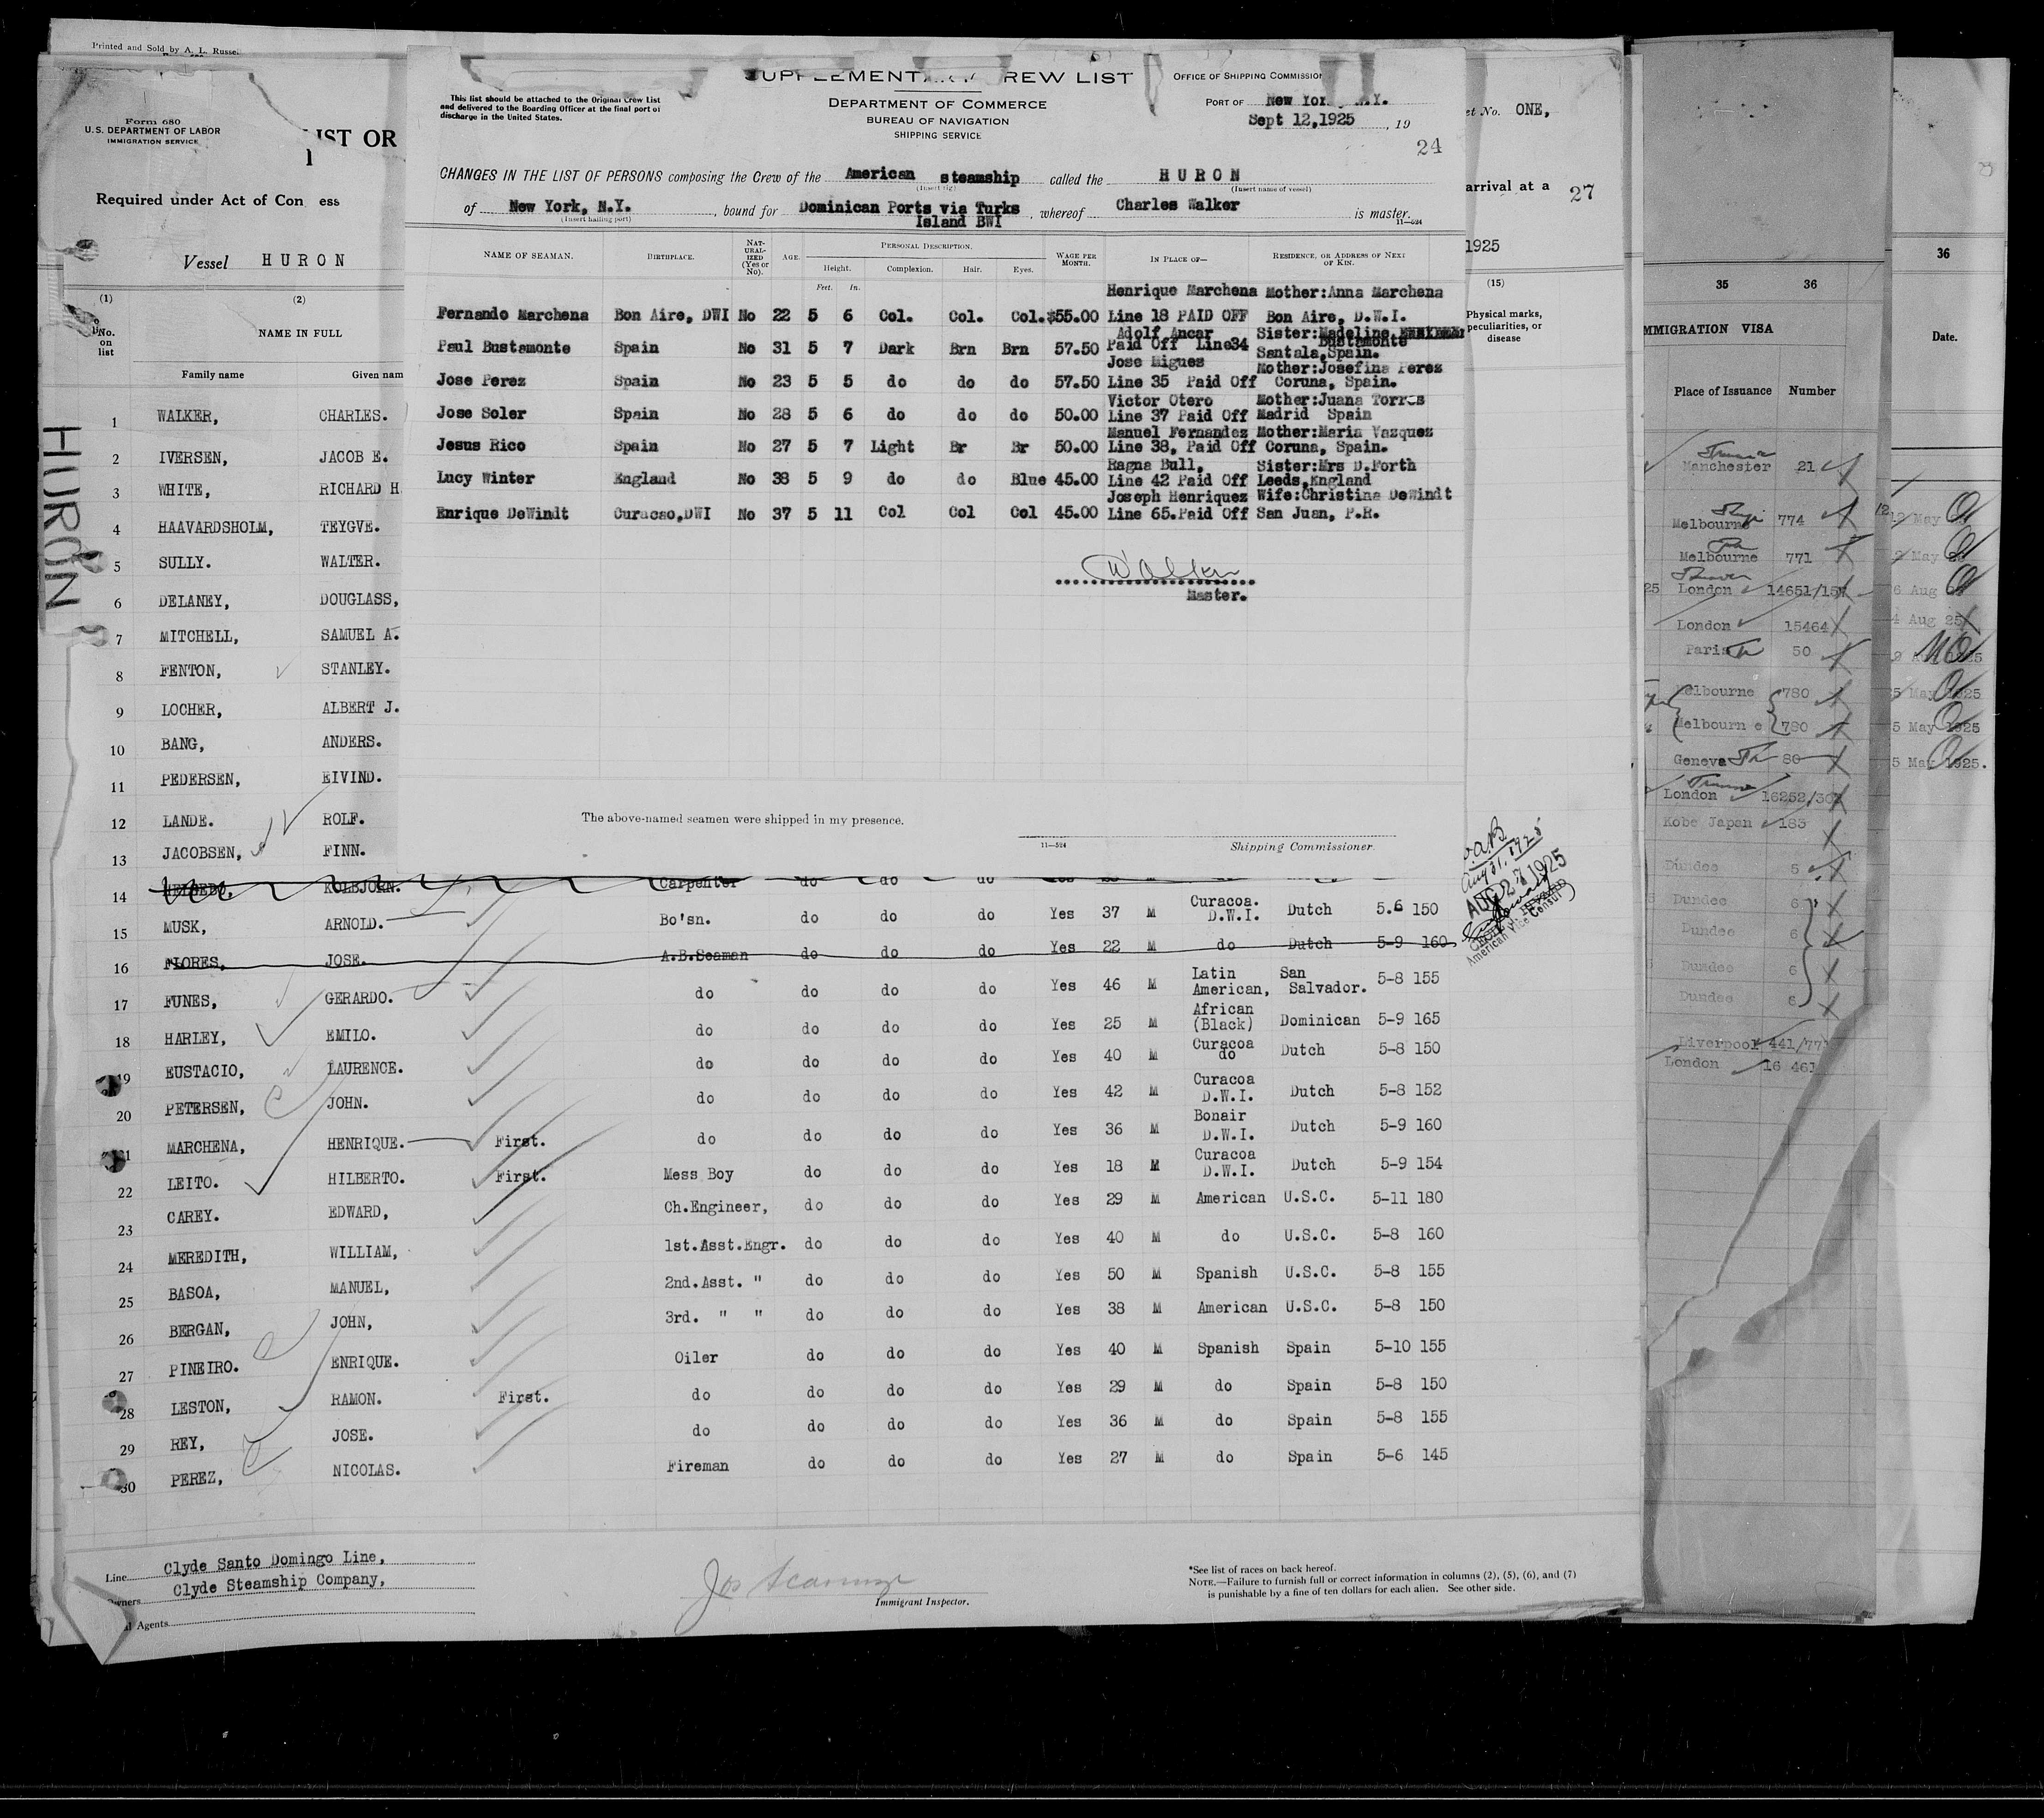 Printed and Sold by A. L. Russe
Form 680
U.S. DEPARTMENT OF LABOR
IMMIGRATION SERVICE
IST OR
Required under Act of Con ess
Vessel HURON
(1) (2)
No. on list
NAME IN FULL
Family name Given nam
HURON
1 WALKER, CHARLES.
2 IVERSEN, JACOB E.
3 WHITE, RICHARD H
4 HAAVARDSHOLM, TEYGVE.
5 SULLY. WALTER.
6 DELANEY, DOUGLASS,
7 MITCHELL, SAMUEL A.
8 FENTON, STANLEY.
9 LOCHER, ALBERT J.
10 BANG, ANDERS.
11 PEDERSEN, EIVIND.
12 LANDE. ROLF.
13 JACOBSEN, FINN.
SUPPLEMENTARY CREW LIST
This list should be attached to the Original Crew List
and delivered to the Boarding Officer at the final port of
discharge in the United States.
DEPARTMENT OF COMMERCE
BUREAU OF NAVIGATION
SHIPPING SERVICE
OFFICE OF SHIPPING COMMISSION
PORT OF New York, N.Y.
Sept 12,1925, 19
24
CHANGES IN THE LIST OF PERSONS composing the Crew of the American steamship called the HURON
(Insert rig) (Insert name of vessel)
of New York, N.Y., bound for Dominican Ports via Turks Island BWI, whereof Charles Walker is master.
(Insert hailing port) 11—524
NAME OF SEAMAN. BIRTHPLACE. NATURALIZED (Yes or No). AGE. PERSONAL DESCRIPTION. WAGE PER MONTH. IN PLACE OF— RESIDENCE, OR ADDRESS OF NEXT OF KIN.
Height. Complexion. Hair. Eyes.
Feet. In.
Henrique Marchena Mother:Anna Marchena
Fernando Marchena Bon Aire, DWI No 22 5 6 Col. Col. Col. $55.00 Line 18 PAID OFF Bon Aire, D.W.I.
Adolf Ancar Sister:Madeline Bustamonte
Paul Bustamonte Spain No 31 5 7 Dark Brn Brn 57.50 Paid Off Line34 Santala,Spain.
Jose Migues Mother:Josefina Perez
Jose Perez Spain No 23 5 5 do do do 57.50 Line 35 Paid Off Coruna, Spain.
Victor Otero Mother:Juana Torres
Jose Soler Spain No 28 5 6 do do do 50.00 Line 37 Paid Off Madrid Spain
Manuel Fernandez Mother:Maria Vazquez
Jesus Rico Spain No 27 5 7 Light Br Br 50.00 Line 38, Paid Off Coruna, Spain.
Ragna Bull, Sister:Mrs D.Forth
Lucy Winter England No 38 5 9 do do Blue 45.00 Line 42 Paid Off Leeds,England
Joseph Henriquez Wife:Christina DeWindt
Enrique DeWindt Curacao,DWI No 37 5 11 Col Col Col 45.00 Line 65.Paid Off San Juan, P.R.
CWalker
Master.
The above-named seamen were shipped in my presence.
11—524 Shipping Commissioner.
14 KOLBJORN. Carpenter do do do
15 MUSK, ARNOLD. Bo'sn. do do do Yes 37 M Curacoa. D.W.I. Dutch 5.6 150
16 FLORES, JOSE. A.B.Seaman do do do Yes 22 M do Dutch 5-9 160
17 FUNES, GERARDO. do do do do Yes 46 M Latin American, San Salvador. 5-8 155
18 HARLEY, EMILO. do do do do Yes 25 M African (Black) Dominican 5-9 165
19 EUSTACIO, LAURENCE. do do do do Yes 40 M Curacoa do Dutch 5-8 150
20 PETERSEN, JOHN. do do do do Yes 42 M Curacoa D.W.I. Dutch 5-8 152
21 MARCHENA, HENRIQUE. First. do do do do Yes 36 M Bonair D.W.I. Dutch 5-9 160
22 LEITO. HILBERTO. First. Mess Boy do do do Yes 18 M Curacoa D.W.I. Dutch 5-9 154
23 CAREY. EDWARD, Ch.Engineer, do do do Yes 29 M American U.S.C. 5-11 180
24 MEREDITH, WILLIAM, 1st.Asst.Engr. do do do Yes 40 M do U.S.C. 5-8 160
25 BASOA, MANUEL, 2nd.Asst. " do do do Yes 50 M Spanish U.S.C. 5-8 155
26 BERGAN, JOHN, 3rd. " " do do do Yes 38 M American U.S.C. 5-8 150
27 PINEIRO. ENRIQUE. Oiler do do do Yes 40 M Spanish Spain 5-10 155
28 LESTON, RAMON. First. do do do do Yes 29 M do Spain 5-8 150
29 REY, JOSE. do do do do Yes 36 M do Spain 5-8 155
30 PEREZ, NICOLAS. Fireman do do do Yes 27 M do Spain 5-6 145
Line Clyde Santo Domingo Line,
Owners Clyde Steamship Company,
l Agents
Immigrant Inspector.
*See list of races on back hereof.
NOTE.—Failure to furnish full or correct information in columns (2), (5), (6), and (7)
is punishable by a fine of ten dollars for each alien. See other side.
et No. ONE,
arrival at a
27
1925
(15)
Physical marks, peculiarities, or disease
Aug 31, 1925
AUG 27 1925
American Vice Consul
35 36
IMMIGRATION VISA
Place of Issuance Number
Manchester 21
Melbourne 774
Melbourne 771
25 London 14651/15
London 15464
Paris 50
Melbourne 780
Melbourn e 780
Geneva 80
London 16252/30
Kobe Japan 183
Dundee 5
Dundee 6
Dundee 6
Dundee 6
Dundee 6
Liverpool 441/77
London 16 461
36
Date.
12 May
2 May
6 Aug
4 Aug 25
5 May 1925
5 May 1925
5 May 1925.